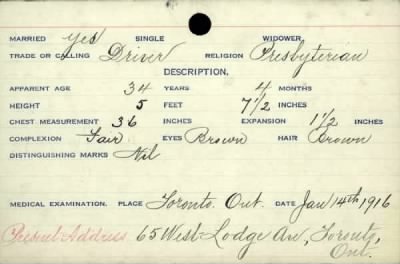 MARRIED Yes SINGLE WIDOWER
TRADE OR CALLING Driver RELIGION Presbyterian
DESCRIPTION.
APPARENT AGE 34 YEARS 4 MONTHS
HEIGHT 5 FEET 7 1/2 INCHES
CHEST MEASUREMENT 36 INCHES EXPANSION 1 1/2 INCHES
COMPLEXION Fair EYES Brown HAIR Brown
DISTINGUISHING MARKS Nil
MEDICAL EXAMINATION. PLACE Toronto. Ont. DATE Jan 14th 1916
Present Address 65 West Lodge Av, Toronto,
Ont.